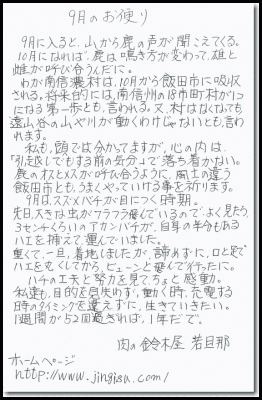 9月のお便り
9月に入ると、山から鹿の声が聞こえてくる。
10月になれば、鹿は鳴き方が変わって、雄と
雌が呼び合うんだに。
わが南信濃村は、10月から飯田市に吸収
される。将来的には、南信州の18市町村が1つ
になる第一歩とも、言われる。又、村はなくなっても、
遠山谷の山や川が動くわけじゃないとも言わ
れます。
私も、頭では分かってますが、心の内は、
「引っ越しでもする前の気分」で落ち着かない。
鹿のオスとメスが呼び合うように、風土の違う
飯田市とも、うまくやっていける事を祈ります。
9月は、スズメバチが目につく時期。
先日、大きな虫がフラフラ飛んでいるので、よく見たら、
3センチくらいのアカンバチが、自身の半分もある
ハエを捕えて、運んでいました。
重くて、一旦、着地しましたが、諦めずに、口と足で
ハエを丸くしてから、ビューンと飛んで行った。
ハチの工夫と努力を見て、ちょと感動。
私達も、目的を見失わず、動く時、充電する
時のタイミングを違えずに、生きていきたい。
1週間が52回過ぎれば、1年だで。
肉の鈴木屋 若旦那
ホームページ
http://www.jingisu.com/